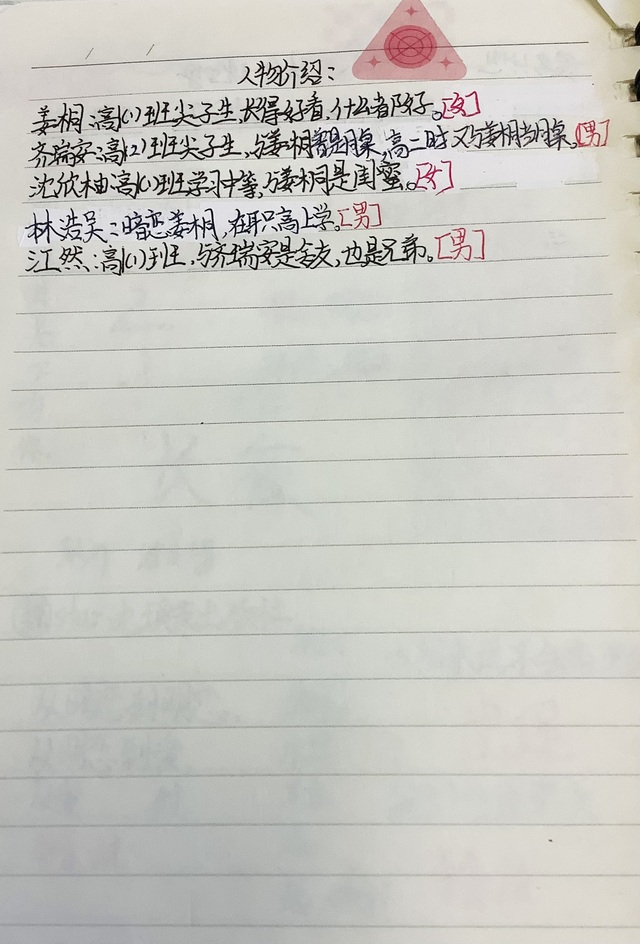 人物介绍：
姜桐：高(1)班尖子生，长得好看，什么都好。[女]
齐瑞安：高(2)班尖子生，与姜桐是同桌，高二时又与姜桐当同桌。[男]
沈欣柚：高(1)班学习中等，与姜桐是闺蜜。[女]
林浩吴：暗恋姜桐，在职高上学。[男]
江然：高(1)班，与齐瑞安是舍友，也是兄弟。[男]